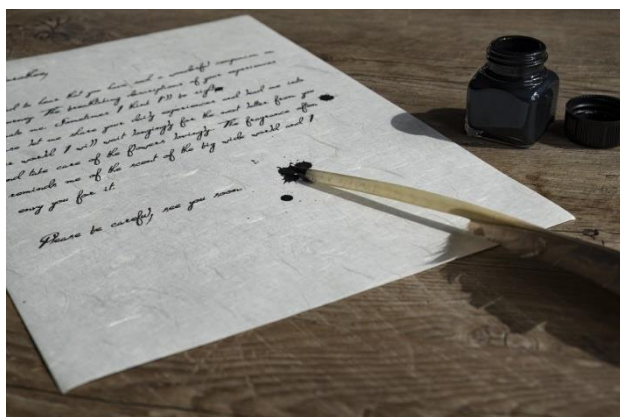 to hear that you have such a wonderful companion on
The breathtaking descriptions of your experiences
me. Sometimes I think it's so right
let me share your daily experiences and lead me into
world. I will wait longingly for the next letter from you
and take care of the flowers lovingly. The fragrance often
reminds me of the scent of the big wide world and I
envy you for it.
Please be careful, see you soon.